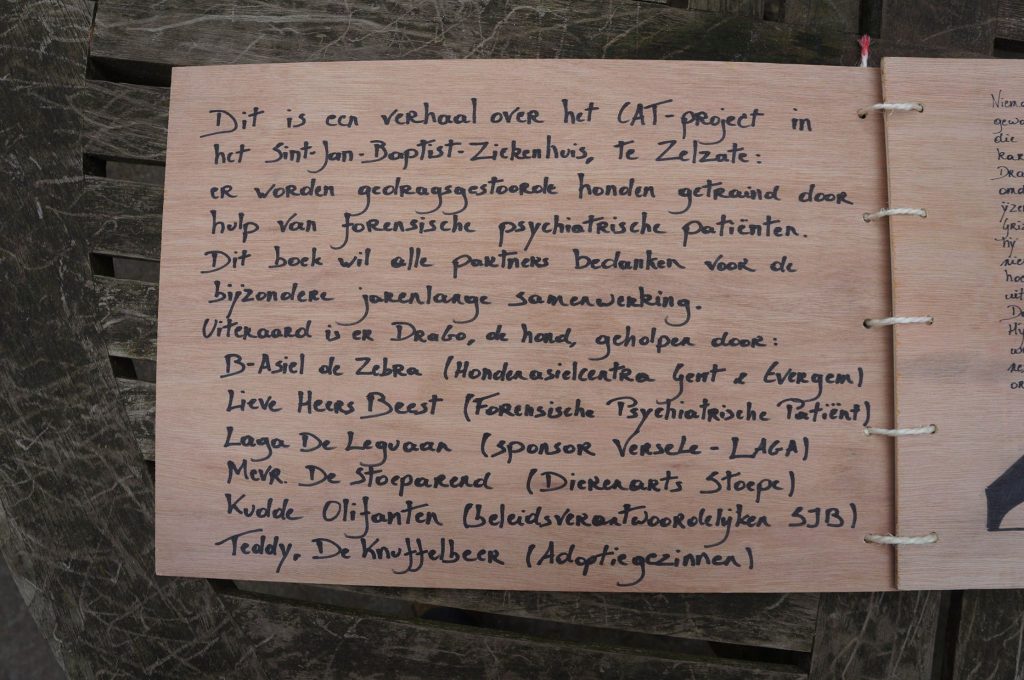 Dit is een verhaal over het CAT-project in
het Sint-Jan-Baptist-Ziekenhuis, te Zelzate:
er worden gedragsgestoorde honden getraind door
hulp van forensische psychiatrische patiënten.
Dit boek wil alle partners bedanken voor de
bijzondere jarenlange samenwerking.
Uiteraard is er Drago, de hond, geholpen door:
B-Asiel de Zebra (Hondenasielcentra Gent & Evergem)
Lieve Heers Beest (Forensische Psychiatrische Patiënt)
Laga De Leguaan (sponsor Versele-LAGA)
Mevr. De Stoeparend (Dierenarts Stoepe)
Kudde Olifanten (beleidsverantwoordelijken SJB)
Teddy, De Knuffelbeer (Adoptiegezinnen)
die